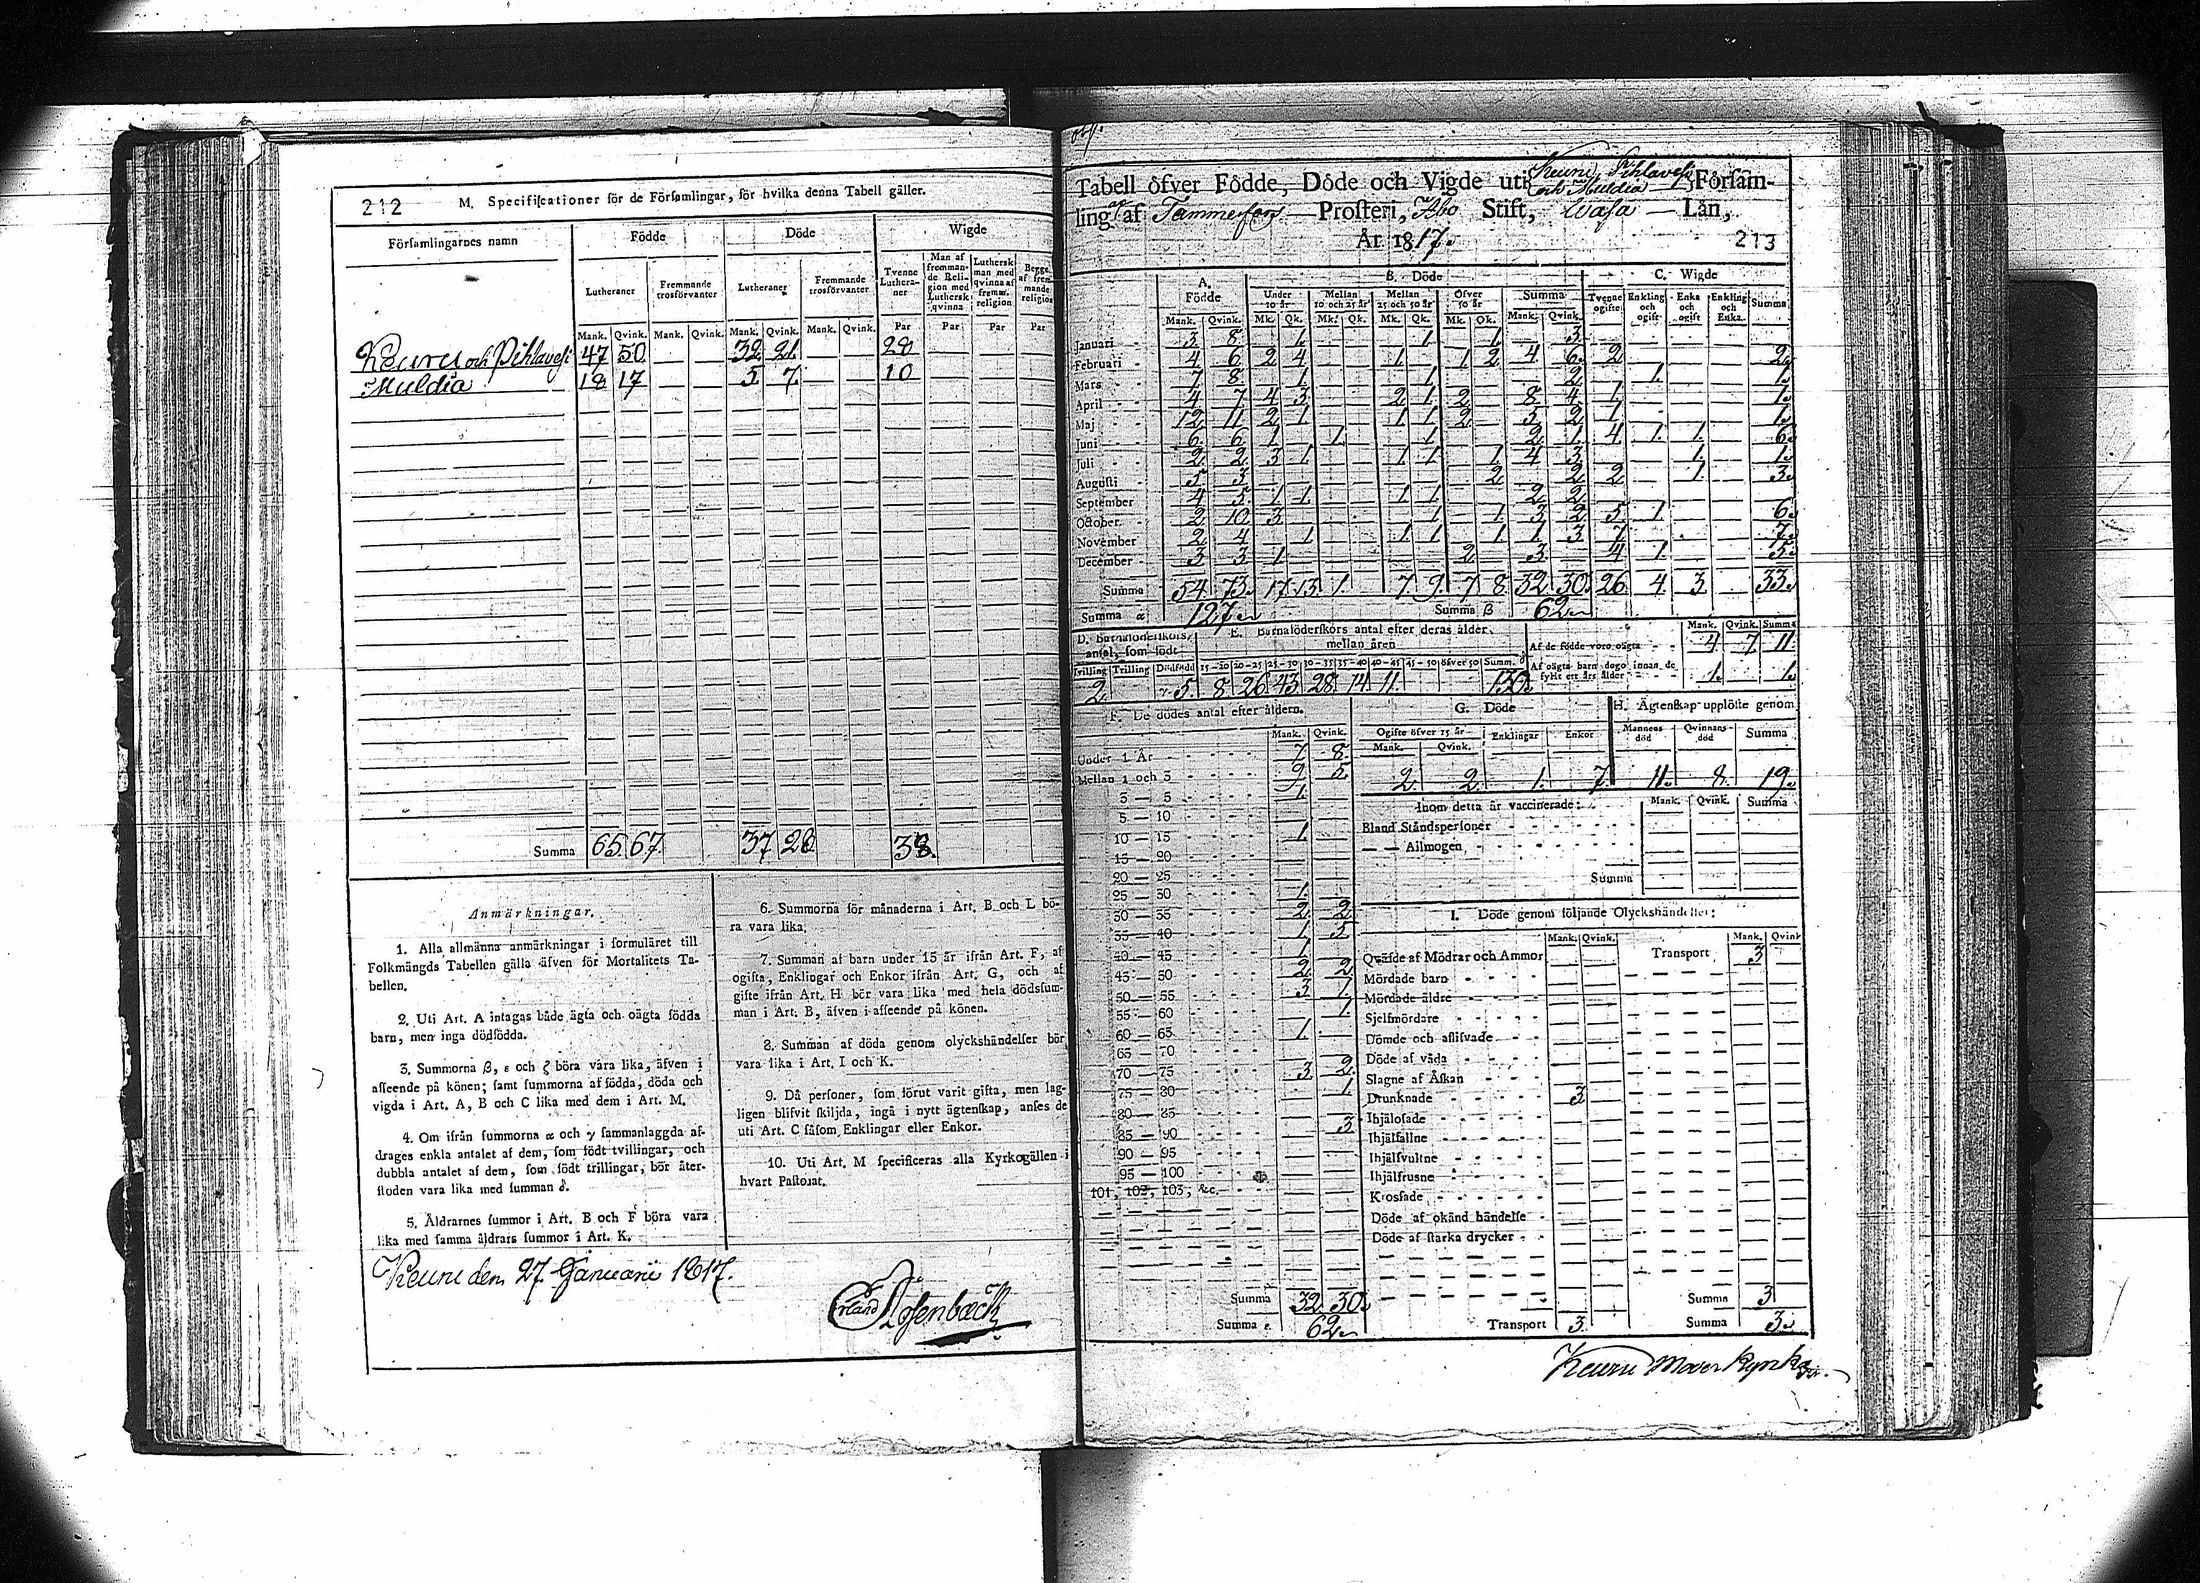 212 M. Specificationer för de Församlingar, för hvilka denna Tabell gäller.
Församlingarnes namn Födde Döde Wigde
Lutheraner Fremmande trosförvanter Lutheraner Fremmande trosförvanter Tvenne Lutheraner Man af fremmande Religion med Luthersk qvinna Luthersk man med qvinna af fremm. religion Begge af fremmande religion
Mank. Qvink. Mank. Qvink. Mank. Qvink. Mank. Qvink. Par Par Par Par
Keuru och Pihlavesi 47 50 32 21 28
Muldia 18 17 5 7 10
Summa 65 67 37 28 38
Anmärkningar.
1. Alla allmänna anmärkningar i formuläret till
Folkmängds Tabellen gälla äfven för Mortalitets Ta-
bellen.
2. Uti Art. A intagas både ägta och oägta födda
barn, men inga dödfödda.
3. Summorna β, ε och ζ böra vara lika, äfven i
afseende på könen; samt summorna af födda, döda och
vigda i Art. A, B och C lika med dem i Art. M.
4. Om ifrån summorna α och γ sammanlaggda af-
drages enkla antalet af dem, som födt tvillingar, och
dubbla antalet af dem, som födt trillingar, bör åter-
stoden vara lika med summan δ.
5. Åldrarnes summor i Art. B och F böra vara
lika med samma åldrars summor i Art. K.
6. Summorna för månaderna i Art. B och L bö-
ra vara lika.
7. Summan af barn under 15 år ifrån Art. F, af
ogifta, Enklingar och Enkor ifrån Art. G, och af
gifte ifrån Art. H bör vara lika med hela dödssum-
man i Art. B, äfven i afseende på könen.
8. Summan af döda genom olyckshändelser bör
vara lika i Art. I och K.
9. Då personer, som förut varit gifta, men lag-
ligen blifvit skiljda, ingå i nytt ägtenskap, anses de
uti Art. C såsom Enklingar eller Enkor.
10. Uti Art. M specificeras alla Kyrkogällen i
hvart Pastorat.
Keuru den 27 Januarii 1817.
Erland Rosenback
Tabell öfver Födde, Döde och Vigde uti Keuru Pihlavesi och Muldia Försam-
lingar af Tammerfors Prosteri, Åbo Stift, Wasa Län,
År 1817. 213
A. Födde B. Döde C. Wigde
Under 10 år Mellan 10 och 25 år Mellan 25 och 50 år Öfver 50 år Summa Tvenne ogifte Enkling och ogift Enka och ogift Enkling och Enka Summa
Mank. Qvink. Mk. Qk. Mk. Qk. Mk. Qk. Mk. Qk. Mank. Qvink.
Januari 3 8 1 1 1 3
Februari 4 6 2 4 1 1 2 4 6 2 2
Mars 7 8 1 1 2 1 1
April 4 7 4 3 2 1 2 8 4 1 1
Maj 12 11 2 1 1 1 2 5 2 1 1
Juni 6 6 1 1 1 2 1 4 1 1 6
Juli 2 2 3 1 1 1 1 4 3 1 1
Augusti 5 3 2 2 2 1 3
September 4 5 1 1 1 1 2 2
October 2 10 3 1 1 3 2 5 1 6
November 2 4 1 1 1 1 1 3 7 7
December 3 3 1 2 3 4 1 5
Summa 54 73 17 13 1 7 9 7 8 32 30 26 4 3 33
Summa α 127 Summa β 62
D. Barnaföderskors antal, som födt E. Barnaföderskors antal efter deras ålder mellan åren Mank. Qvink. Summa
Af de födde voro oägta 4 7 11
Tvilling Trilling Dödfödd 15-20 20-25 25-30 30-35 35-40 40-45 45-50 öfver 50 Summ. δ
Af oägta barn dogo innan de fyllt ett års ålder 1 1
2 γ 5 8 26 43 28 14 11 130
F. De dödes antal efter åldern. G. Döde H. Ägtenskap upplöste genom
Mank. Qvink. Ogifte öfver 15 år Enklingar Enkor Mannens död Qvinnans död Summa
Under 1 År 7 8 Mank. Qvink.
Mellan 1 och 3 9 5 2 2 1 7 11 8 19
3 — 5 1 Inom detta år vaccinerade: Mank. Qvink. Summa
5 — 10 Bland Ståndspersoner
10 — 15 1 — — Allmogen
15 — 20
20 — 25 Summa
25 — 30 1
30 — 35 2 2 I. Döde genom följande Olyckshändelser:
35 — 40 1 5 Mank. Qvink. Mank. Qvink.
40 — 45 1 Qväfde af Mödrar och Ammor Transport 3
45 — 50 2 2 Mördade barn
50 — 55 3 1 Mördade äldre
55 — 60 1 Sjelfmördare
60 — 65 1 Dömde och aflifvade
65 — 70 Döde af våda
70 — 75 3 2 Slagne af Åskan
75 — 80 1 Drunknade 3
80 — 85 Ihjälosade
85 — 90 3 Ihjälfallne
90 — 95 Ihjälsvultne
95 — 100 Ihjälfrusne
101, 102, 103, &c. Krossade
Döde af okänd händelse
Döde af starka drycker
Summa 32 30 Summa 3
Summa ε 62 Transport 3 Summa 3
Keuru Moderkyrka